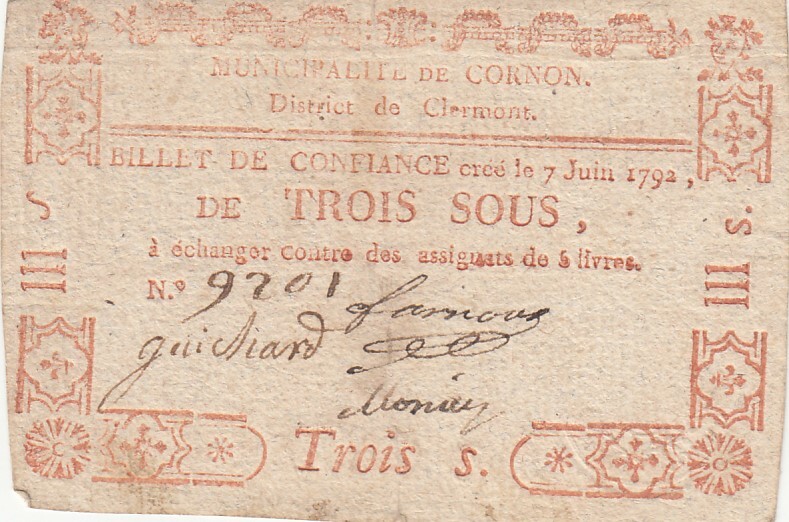 MUNICIPALITÉ DE CORNON.
District de Clermont.
BILLET DE CONFIANCE créé le 7 Juin 1792,
DE TROIS SOUS,
à échanger contre des assignats de 5 livres.
N.º 9201
guichard
Trois s.
III S
III s.